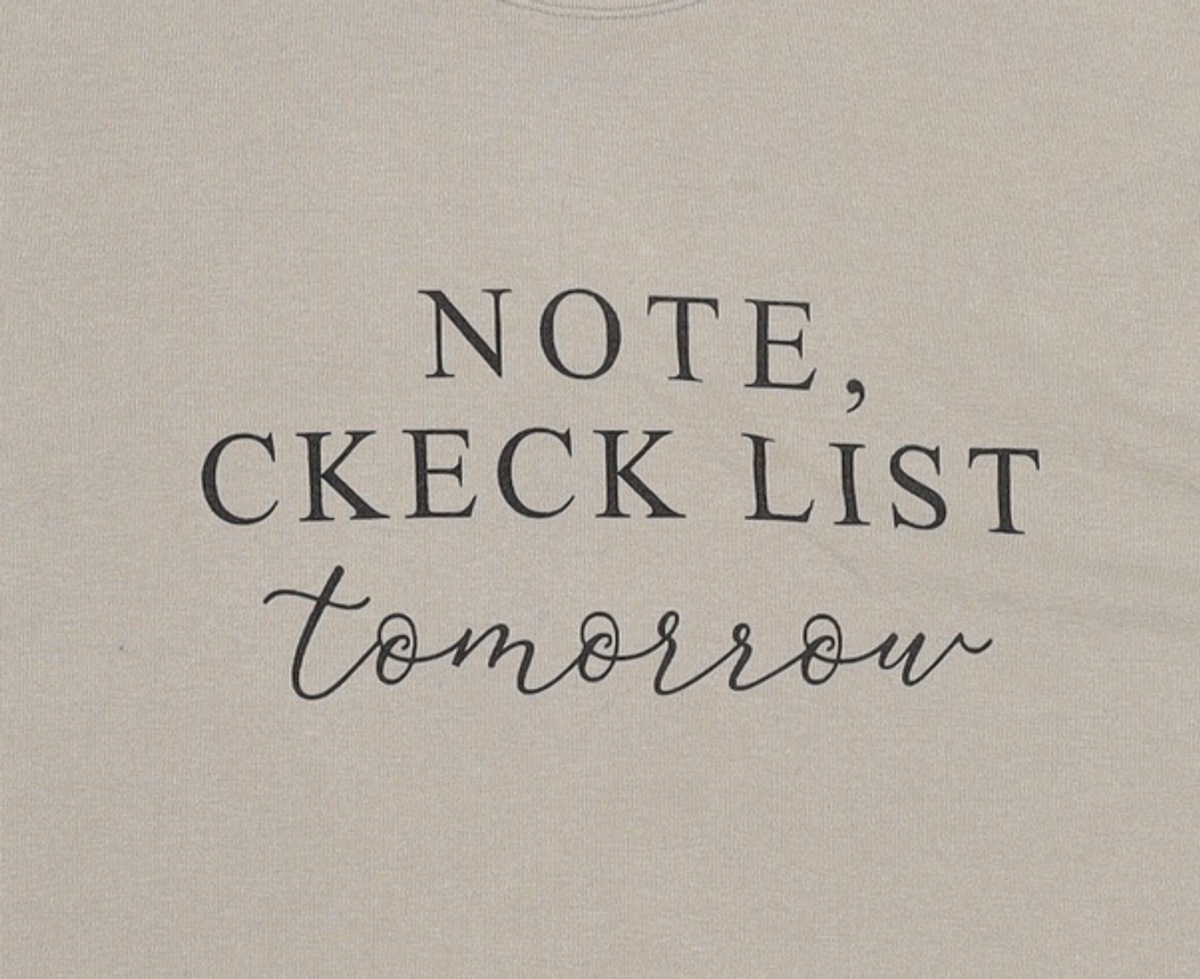 NOTE,
CKECK LIST
tomorrow